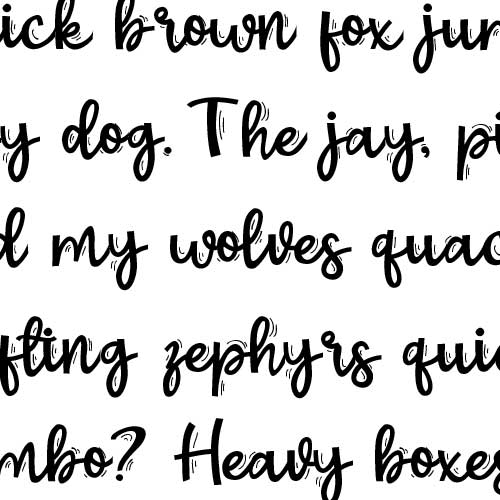 ick brown fox jum
y dog. The jay, pi
d my wolves quac
fting zephyrs quic
mbo? Heavy boxes